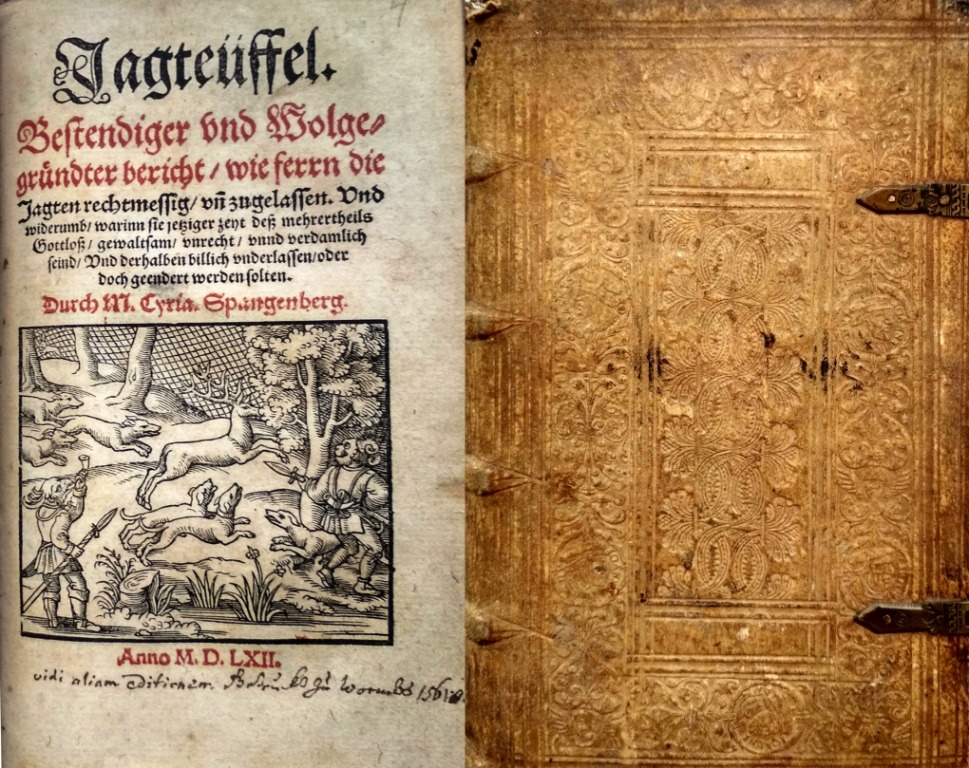 Jagteüffel.
Bestendiger vnd Wolge-
gründter bericht / wie ferrn die
Jagten rechtmessig / vñ zugelassen. Vnd
widerumb / warinn sie jetziger zeyt deß mehrertheils
Gottloß / gewaltsam / vnrecht / vnnd verdamlich
seind / Vnd derhalben billich vnderlassen / oder
doch geendert werden solten.
Durch M. Cyria. Spangenberg.
Anno M. D. LXII.
vidi aliam editionem zu Wormbs